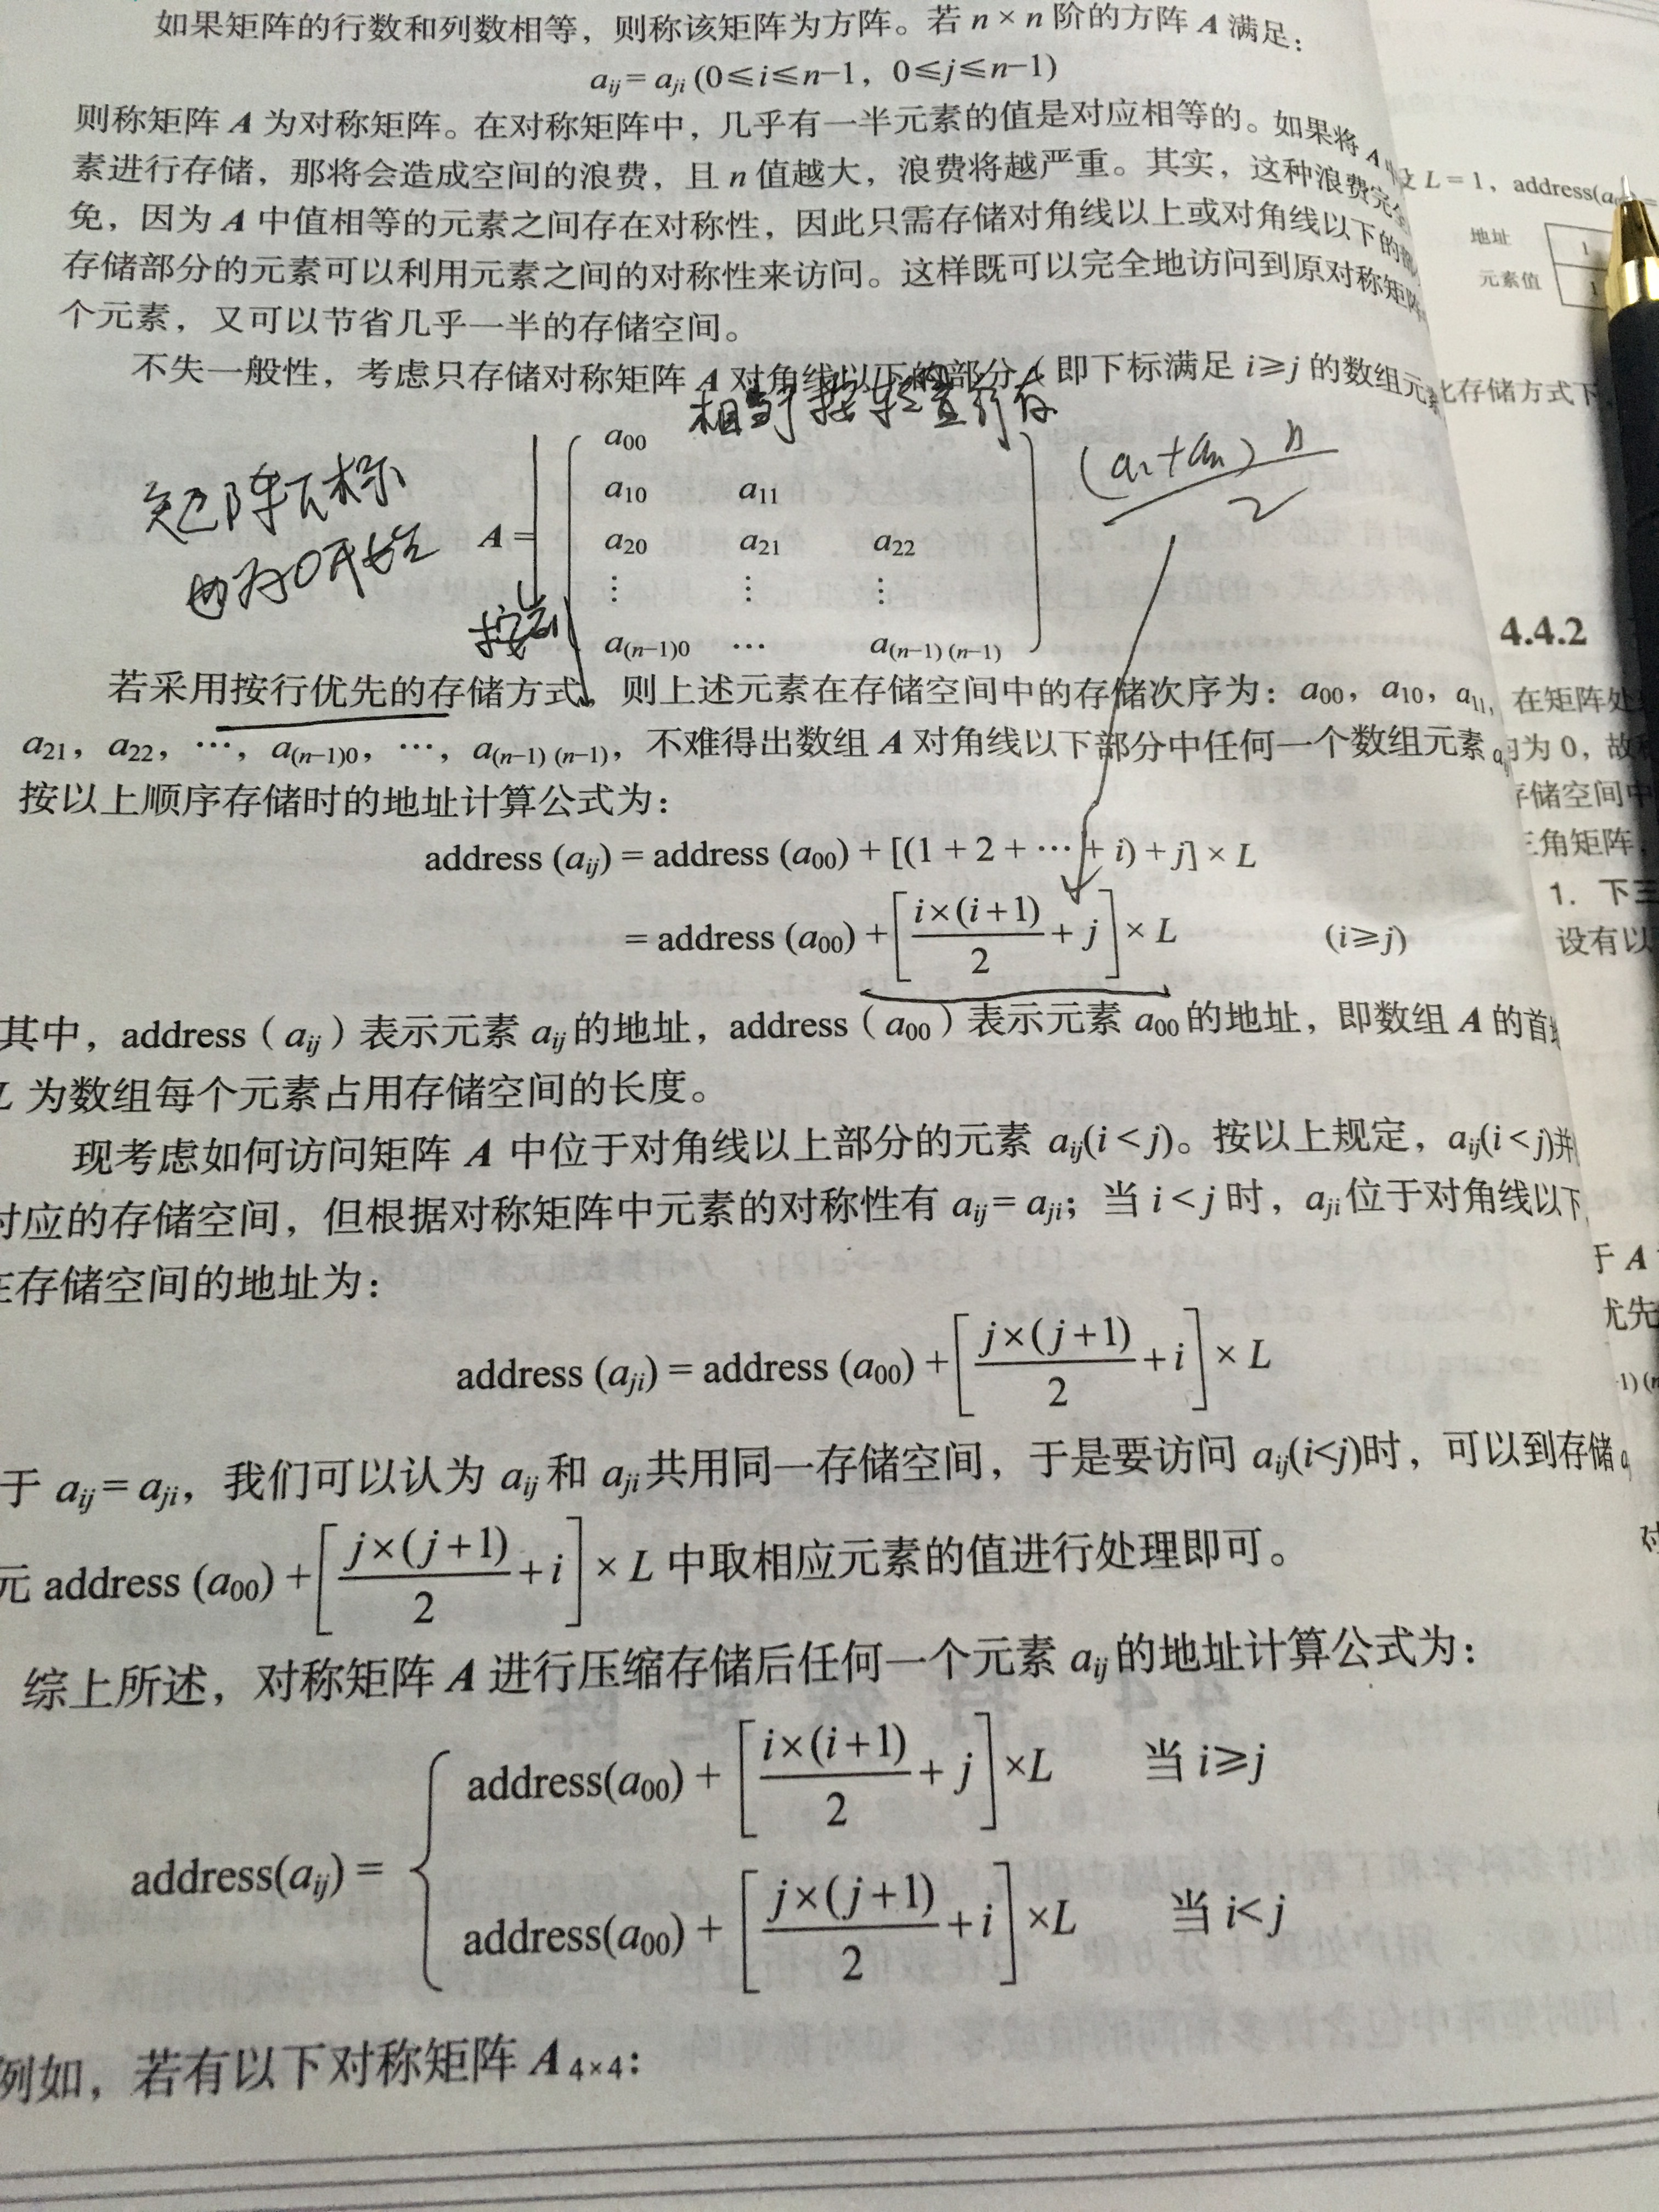 如果矩阵的行数和列数相等，则称该矩阵为方阵。若 n × n 阶的方阵 A 满足：
aij = aji (0≤i≤n−1，0≤j≤n−1)
则称矩阵 A 为对称矩阵。在对称矩阵中，几乎有一半元素的值是对应相等的。如果将 A
素进行存储，那将会造成空间的浪费，且 n 值越大，浪费将越严重。其实，这种浪费完全
免，因为 A 中值相等的元素之间存在对称性，因此只需存储对角线以上或对角线以下的部
存储部分的元素可以利用元素之间的对称性来访问。这样既可以完全地访问到原对称矩阵
个元素，又可以节省几乎一半的存储空间。
不失一般性，考虑只存储对称矩阵 A 对角线以下的部分（即下标满足 i≥j 的数组元素
相当于按转置行存
矩阵下标
由为0开始
按行
(a1+an) n
2
A =
a00
a10 a11
a20 a21 a22
⋮ ⋮ ⋮
a(n−1)0 … a(n−1)(n−1)
若采用按行优先的存储方式，则上述元素在存储空间中的存储次序为：a00，a10，a11，
a21，a22，…，a(n−1)0，…，a(n−1)(n−1)，不难得出数组 A 对角线以下部分中任何一个数组元素 aij
按以上顺序存储时的地址计算公式为：
address (aij) = address (a00) + [(1 + 2 + ⋯ + i) + j] × L
= address (a00) + [i×(i+1)/2 + j] × L (i≥j)
其中，address（aij）表示元素 aij 的地址，address（a00）表示元素 a00 的地址，即数组 A 的首
L 为数组每个元素占用存储空间的长度。
现考虑如何访问矩阵 A 中位于对角线以上部分的元素 aij(i < j)。按以上规定，aij(i < j)并
对应的存储空间，但根据对称矩阵中元素的对称性有 aij = aji；当 i < j 时，aji 位于对角线以下
在存储空间的地址为：
address (aji) = address (a00) + [j×(j+1)/2 + i] × L
于 aij = aji，我们可以认为 aij 和 aji 共用同一存储空间，于是要访问 aij(i<j)时，可以到存储
元 address (a00) + [j×(j+1)/2 + i] × L 中取相应元素的值进行处理即可。
综上所述，对称矩阵 A 进行压缩存储后任何一个元素 aij 的地址计算公式为：
address(aij) =
address(a00) + [i×(i+1)/2 + j] ×L 当 i≥j
address(a00) + [j×(j+1)/2 + i] ×L 当 i<j
例如，若有以下对称矩阵 A4×4：
L = 1，address(a
地址 1
元素值 1
此存储方式下，
4.4.2
在矩阵处
为 0，故
存储空间中
三角矩阵
1. 下三
设有以
于 A
优先